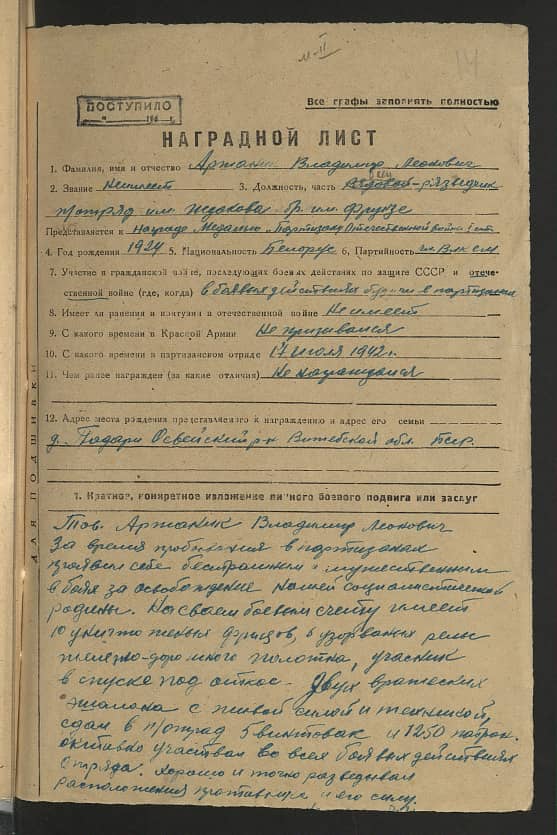 М-II
14
ПОСТУПИЛО
194 г.
Все графы заполнять полностью
НАГРАДНОЙ ЛИСТ
1. Фамилия, имя и отчество Аржаник Владимир Леонович
2. Звание Не имеет 3. Должность, часть Рядовой-разведчик
п/отряд им. Жданова бр. им. Фрунзе
Представляется к награде Медалью „Партизану Отечественной войны I ст.
4. Год рождения 1924 5. Национальность Белорус 6, Партийность чл. ВЛКСМ
7. Участие в гражданской войне, последующих боевых действиях по защите СССР и отече-
ственной войне (где, когда) в боевых действиях будучи в партизанах
8. Имеет ли ранения и контузии в отечественной войне Не имеет
9. С какого времени в Красной Армии Не призывался
10. С какого времени в партизанском отряде 17 июля 1942 г.
11. Чем ранее награжден (за какие отличия) Не награждался
12. Адрес места рождения представляемого к награждению и адрес его семьи
д. Освейский р-н Витебской обл. БССР.
ДЛЯ ПОДШИВКИ
1. Краткое, конкретное изложение личного боевого подвига или заслуг
Тов. Аржаник Владимир Леонович
За время пребывания в партизанах
проявил себе бесстрашным и мужественным
в боях за освобождение нашей социалистической
родины. На своем боевом счету имеет
10 уничтоженых фрицов, взорваных рельс
железно-дорожного полотна, учасник
в спуске под откос двух вражеских
эшалона с живой силой и техникой,
сдал в п/отряд 5 винтовок и 1250 патрон.
активно участвовал во всех боевых действиях
отряда. Хорошо и точно разведывал
расположения противника и его силу.